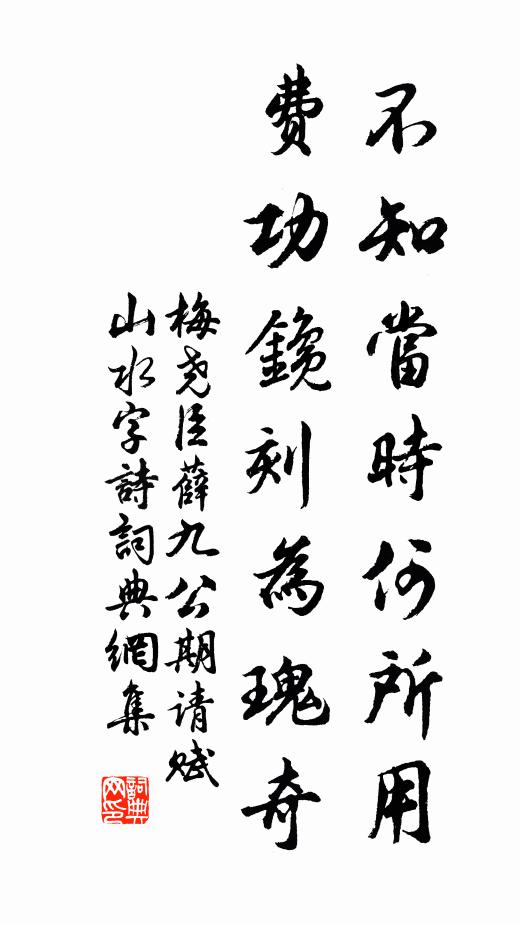 不知當時何所用
費功鑱刻為瑰奇
梅尧臣薛九公期请赋
山水字詩詞典網集
詞典
网印